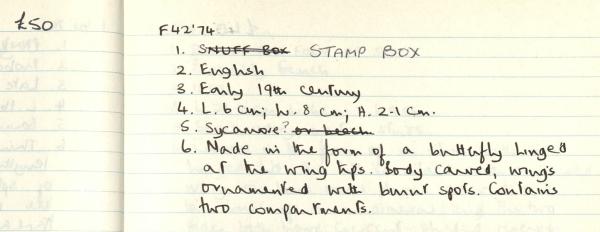 £50
F42'74
1. SNUFF BOX STAMP BOX
2. English
3. Early 19th century
4. L. 6 cm; W. 8 cm; H. 2.1 cm.
5. Sycamore? or beech
6. Made in the form of a butterfly hinged
at the wing tips. Body carved, wings
ornamented with burnt spots. Contains
two compartments.